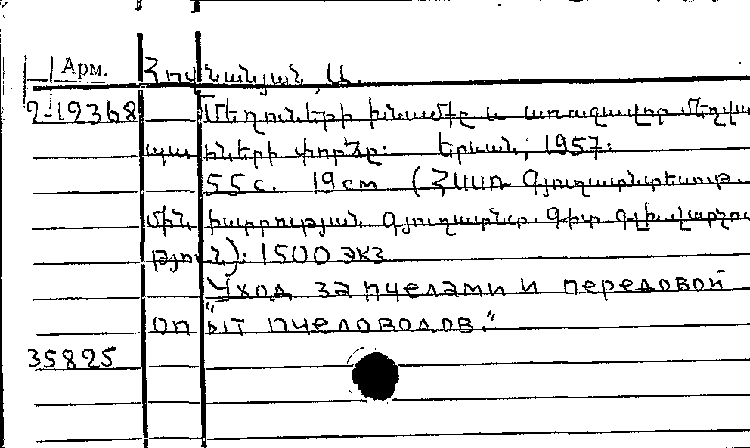 Арм. Հովնանյան, Ա.
2-12368 Մեղուների խնամքը և առաջավոր մեղվա
պահների փորձը: Երևան, 1957:
55 с. 19 см (ՀՍՍՌ Գյուղատնտեսութ.
մին Գյուղատնտ. գիտ
թյուն): 1500 экз
"Уход за пчелами и передовой
опыт пчеловодов."
35825